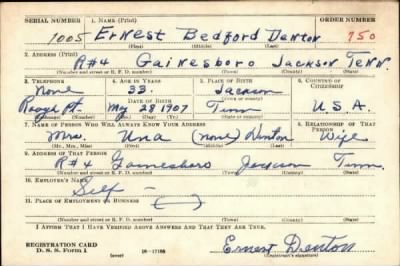 SERIAL NUMBER 1. NAME (Print) ORDER NUMBER
1005 ERNEST Bedford Denton 750
(First) (Middle) (Last)
2. ADDRESS (Print)
R#4 Gainesboro Jackson Tenn.
(Number and street or R. F. D. number) (Town) (County) (State)
3. TELEPHONE 4. AGE IN YEARS 5. PLACE OF BIRTH 6. COUNTRY OF CITIZENSHIP
None 33. Jackson
DATE OF BIRTH (Town or county)
May 28 1907 Tenn U.S.A.
(Exchange) (Number) (Mo.) (Day) (Yr.) (State or country)
7. NAME OF PERSON WHO WILL ALWAYS KNOW YOUR ADDRESS 8. RELATIONSHIP OF THAT PERSON
Mrs. Una (none) Denton Wife
(Mr., Mrs., Miss) (First) (Middle) (Last)
9. ADDRESS OF THAT PERSON
R#4 Gainesboro Jackson Tenn.
(Number and street or R. F. D. number) (Town) (County) (State)
10. EMPLOYER'S NAME
Self
11. PLACE OF EMPLOYMENT OR BUSINESS
(Number and street or R. F. D. number) (Town) (County) (State)
I AFFIRM THAT I HAVE VERIFIED ABOVE ANSWERS AND THAT THEY ARE TRUE.
REGISTRATION CARD Ernest Denton
D. S. S. Form 1 (over) 16-17105 (Registrant's signature)